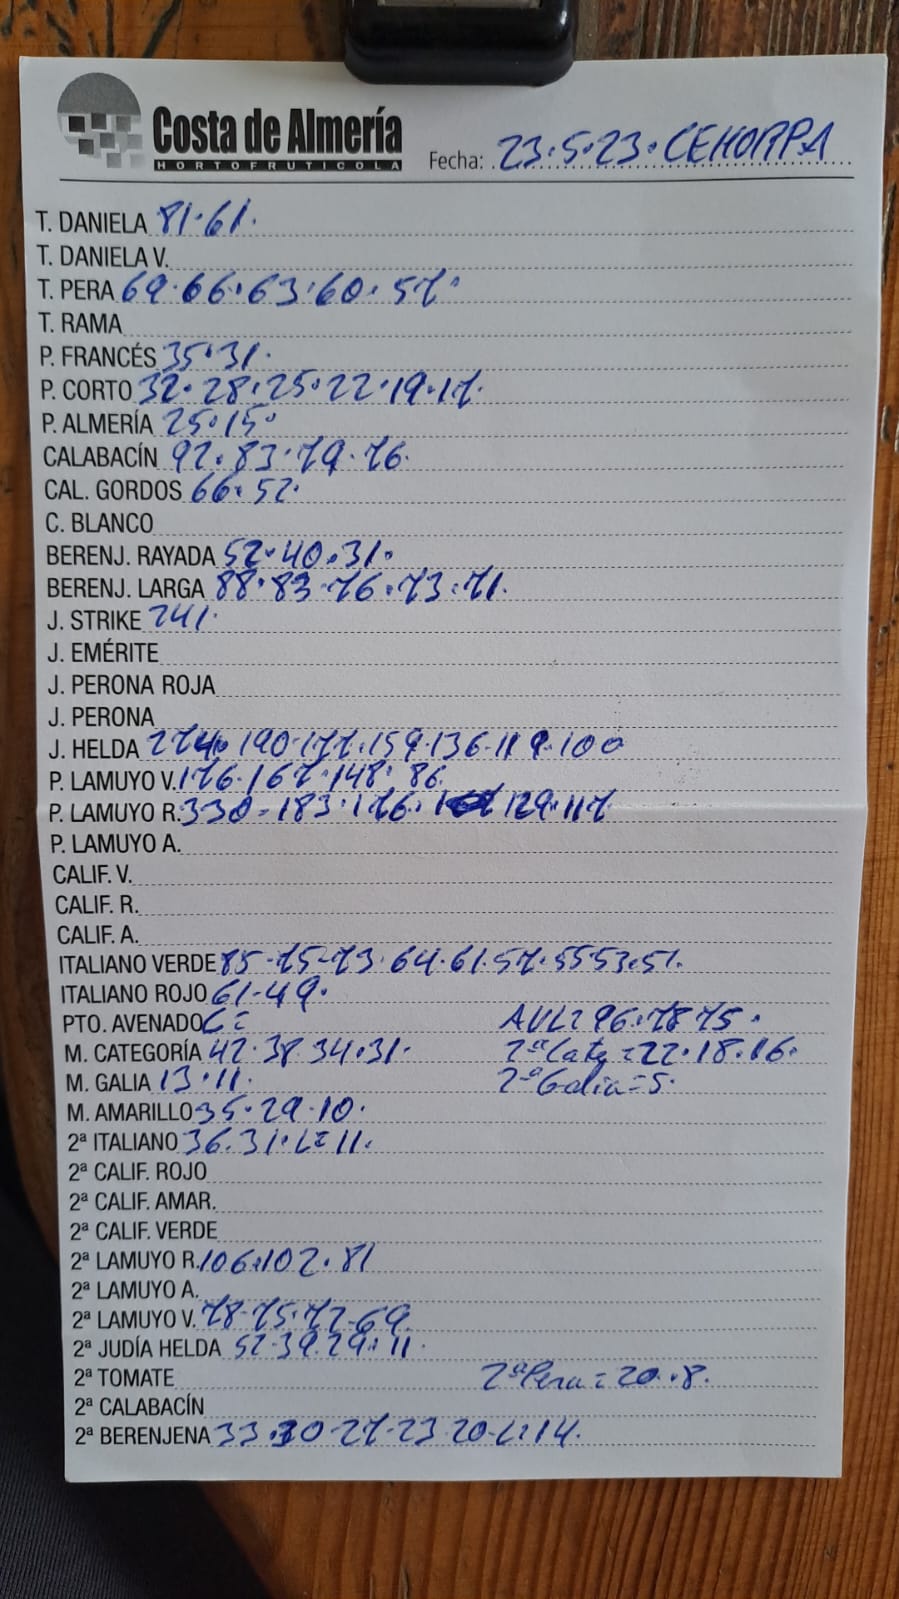 Costa de Almería
HORTOFRUTICOLA
Fecha: 23.5.23. CEHORPA
T. DANIELA 81.61.
T. DANIELA V.
T. PERA 69.66.63.60.57.
T. RAMA
P. FRANCÉS 35.31.
P. CORTO 32.28.25.22.19.17.
P. ALMERÍA 25.15.
CALABACÍN 92.83.79.76.
CAL. GORDOS 66.52.
C. BLANCO
BERENJ. RAYADA 52.40.31.
BERENJ. LARGA 88.83.76.73.71.
J. STRIKE 241.
J. EMÉRITE
J. PERONA ROJA
J. PERONA
J. HELDA 274.190.177.159.136.119.100
P. LAMUYO V. 176.167.148.86.
P. LAMUYO R. 330-183.176. 129.117
P. LAMUYO A.
CALIF. V.
CALIF. R.
CALIF. A.
ITALIANO VERDE 85-75-73.64.61.57.55 53.51.
ITALIANO ROJO 61-49.
PTO. AVENADO L= 96.78 75.
M. CATEGORÍA 42.38.34.31. 2ª Catg = 22.18.16.
M. GALIA 13.11. 2ª Galia = 5.
M. AMARILLO 35.29.10.
2ª ITALIANO 36.31.L=11.
2ª CALIF. ROJO
2ª CALIF. AMAR.
2ª CALIF. VERDE
2ª LAMUYO R. 106.102.81
2ª LAMUYO A.
2ª LAMUYO V. 78-75.72-69.
2ª JUDÍA HELDA 52-39.29.11.
2ª TOMATE 2ª Pera = 20.8.
2ª CALABACÍN
2ª BERENJENA 33.30-27-23-20-L=14.